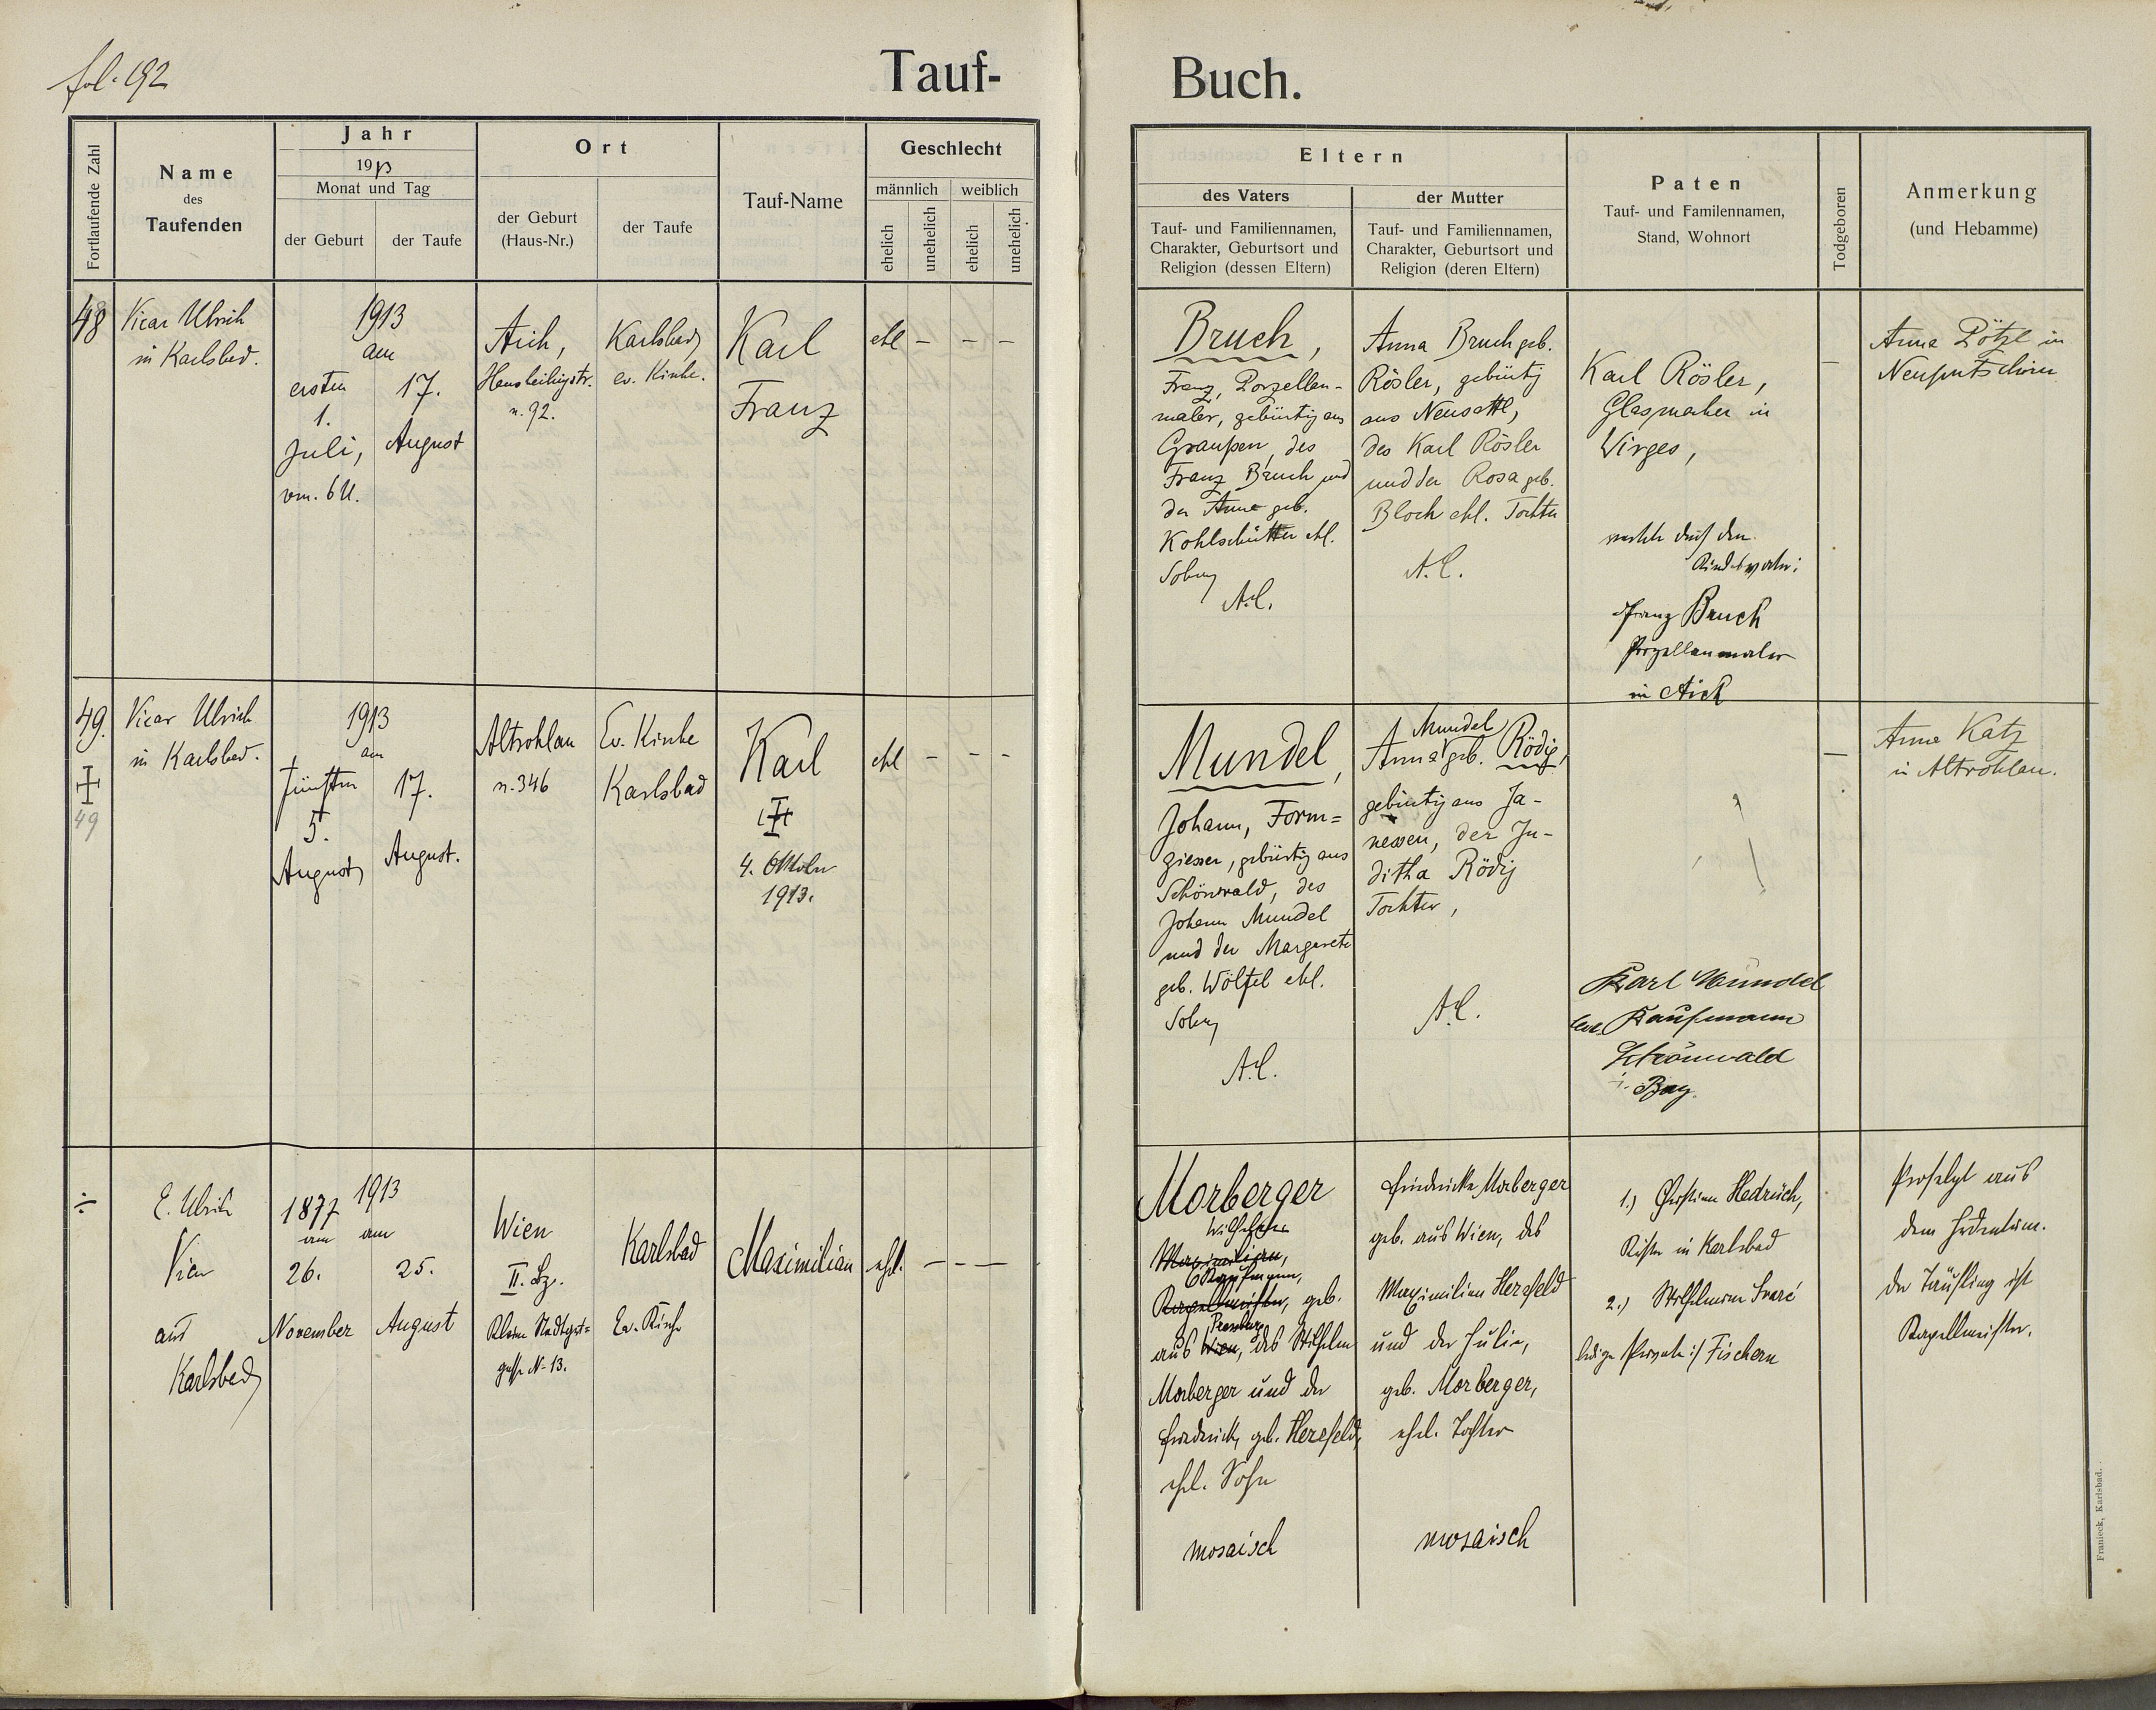 fol. 192
Tauf-
Buch.
Fortlaufende Zahl
Name
des
Taufenden
Jahr
1913
Monat und Tag
der Geburt
der Taufe
Ort
der Geburt
(Haus-Nr.)
der Taufe
Tauf-Name
Geschlecht
männlich
weiblich
ehelich
unehelich
ehelich
unehelich
Eltern
des Vaters
Tauf- und Familiennamen,
Charakter, Geburtsort und
Religion (dessen Eltern)
der Mutter
Tauf- und Familiennamen,
Charakter, Geburtsort und
Religion (deren Eltern)
Paten
Tauf- und Familennamen,
Stand, Wohnort
Todgeboren
Anmerkung
(und Hebamme)
48
Vicar Ulrich
in Karlsbad.
1913
am
ersten
1.
Juli,
vm. 6 U.
17.
August
Aich,
n. 92.
Karlsbad,
ev. Kirche.
Karl
Franz
ehl
– – –
Bruch,
Franz, Porzellan-
maler, gebürtig aus
Graupen, des
Franz Bruch und
der Anna geb.
Kohlschütter ehl.
Sohn
A.C.
Anna Bruch geb.
Rösler, gebürtig
aus Neusattl,
des Karl Rösler
und der Rosa geb.
Bloch ehl. Tochter
A.C.
Karl Rösler,
Glasmacher in
Wirges,
durch den
Kindsvater:
Franz Bruch
Porzellanmaler
in Aich
–
Anna Pötzl in
49.
49
Vicar Ulrich
in Karlsbad.
1913
am
fünften
5.
August,
17.
August.
Altrohlau
n. 346
Ev. Kirche
Karlsbad
Karl
4. Oktober
1913.
ehl
– – –
Mundel,
Johann, Form=
giesser, gebürtig aus
Schönwald, des
Johann Mundel
und der Margarete
geb. Wölfel ehl.
Sohn
A.C.
Mundel
Anna geb. Rödig,
gebürtig aus Ja-
nessen, der Ju-
ditha Rödig
Tochter,
A.C.
Karl Mundel
Kaufmann
Schönwald
i. Bay.
–
Anna Katz
in Altrohlau.
÷
E. Ulrich
Vicar
aus
Karlsbad,
1877
am
26.
November
1913
am
25.
August
Wien
II. Bz.
gasse N. 13.
Karlsbad
Ev. Kirche
Maximilian
ehl.
– – –
Morberger
Wilhelm
Maximilian,
Kaufmann,
Kapellmeister, geb.
Pressburg
aus Wien, des Wilhelm
Morberger und der
Friederike, geb. Herzfeld,
ehl. Sohn
mosaisch
Friederike Morberger
geb. aus Wien, des
Maximilian Herzfeld
und der Julie,
geb. Morberger,
ehel. Tochter
mosaisch
1.) Christian Hedrich,
Küster in Karlsbad
2.) Wilhelmine
ledige Private :/ Fischern
Proselyt aus
dem Judentum.
Der Täufling ist
Kapellmeister.
Franieck, Karlsbad.